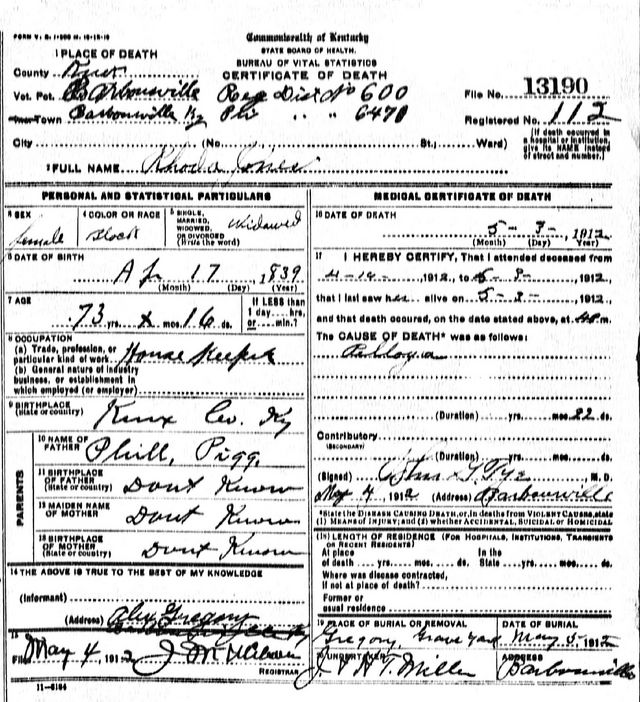 FORM V. S. 1-
Commonwealth of Kentucky
STATE BOARD OF HEALTH.
BUREAU OF VITAL STATISTICS
CERTIFICATE OF DEATH
1 PLACE OF DEATH
County Knox
Vot. Pct. Barbourville Reg Dist No 600
Town Barbourville Ky Pri " " 6470
File No. 13190
Registered No. 112
City (No. St.; Ward)
(If death occurred in
a hospital or institution,
give its NAME instead
of street and number.)
2 FULL NAME Rhoda Jones
PERSONAL AND STATISTICAL PARTICULARS
3 SEX
female
4 COLOR OR RACE
Black
5 SINGLE,
MARRIED,
WIDOWED,
OR DIVORCED
(Write the word)
Widowed
6 DATE OF BIRTH
Ap 17 1839
(Month) (Day) (Year)
7 AGE
73 yrs. x mos. 16 ds.
If LESS than
1 day....hrs.
or....min.?
8 OCCUPATION
(a) Trade, profession, or
particular kind of work House Keeper
(b) General nature of industry
business, or establishment in
which employed (or employer)
9 BIRTHPLACE
(State or country) Knox Co. Ky
PARENTS
10 NAME OF
FATHER Phill, Pigg,
11 BIRTHPLACE
OF FATHER
(State or country) Dont Know
12 MAIDEN NAME
OF MOTHER Dont Know
13 BIRTHPLACE
OF MOTHER
(State or country) Dont Know
14 THE ABOVE IS TRUE TO THE BEST OF MY KNOWLEDGE
(Informant) Alex Gregory
(Address)
15
Filed May 4, 1912 J
REGISTRAR
11-5184
MEDICAL CERTIFICATE OF DEATH
16 DATE OF DEATH
5- 3- 1912
(Month) (Day) (Year)
17 I HEREBY CERTIFY, That I attended deceased from
1912, to 1912,
that I last saw her alive on 1912,
and that death occured, on the date stated above, at
The CAUSE OF DEATH* was as follows:
(Duration) yrs. mos. 22 ds.
Contributory
(SECONDARY)
(Duration) yrs. mos. ds.
(Signed) Tye, M. D.
May 4 1912 (Address) Barbourville
*State the DISEASE CAUSING DEATH, or, in deaths from VIOLENT CAUSES, state
(1) MEANS OF INJURY; and (2) whether ACCIDENTAL, SUICIDAL or HOMICIDAL
18 LENGTH OF RESIDENCE (FOR HOSPITALS, INSTITUTIONS, TRANSIENTS
OR RECENT RESIDENTS)
At place In the
of death yrs. mos. ds. State yrs. mos. ds.
Where was disease contracted,
if not at place of death?
Former or
usual residence
19 PLACE OF BURIAL OR REMOVAL
Gregory, Grave Yard
DATE OF BURIAL
May 5 1912
20 UNDERTAKER
Miller
ADDRESS
Barbourville